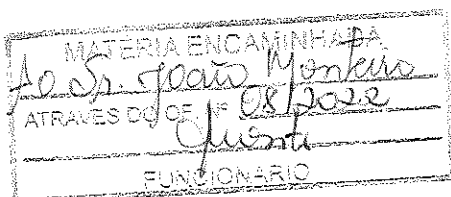 MATERIA ENCAMINHADA
Ao Sr. João Monteiro
ATRAVES DO OF. Nº 08/2022
FUNCIONARIO